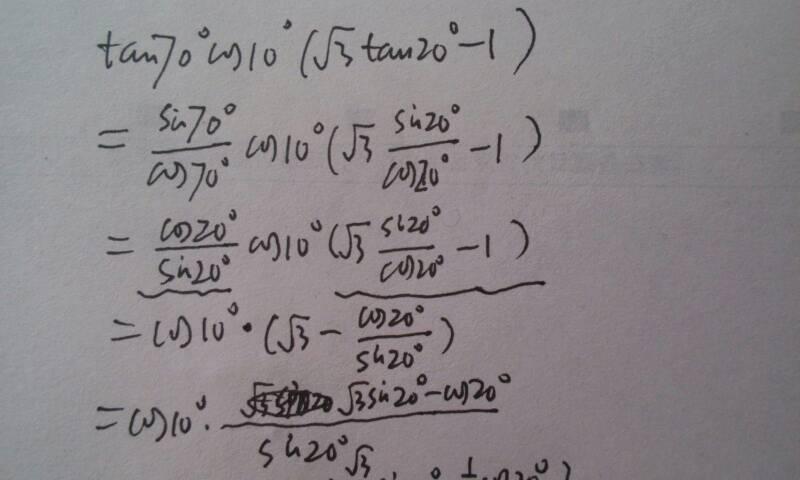 tan70°cos10°(√3tan20°-1)
=sin70°/cos70° cos10°(√3 sin20°/cos20° -1)
=cos20°/sin20° cos10°(√3 sin20°/cos20° -1)
=cos10°·(√3 - cos20°/sin20°)
=cos10°· (√3sin20°-cos20°)/sin20°
√3